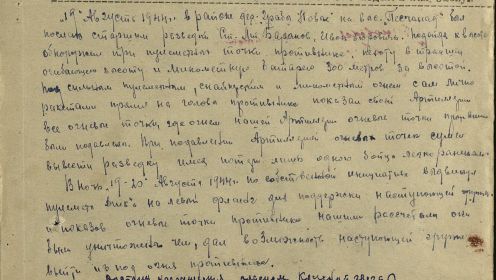 19 Августа 1944 г. в районе дер. Града Новая на выс. "Песчаная" был
послан старшим разведки Ст. Л-т Базанов, подойдя к высоте
обнаружил три пулеметных точки противника, пехоту в траншеи
огибающую высоту и минометную батарею 300 метров за высотой.
Под сильным пулеметным, снайперским и минометным огнем сам лично
ракетами прямо на голову противника показал своей Артиллерии
все огневые точки, где огнем нашей Артиллерии огневые точки противника
были подавлены. При подавлении Артиллерией огневых точек сумел
вывести разведку имея потери лишь одного бойца легко раненым.
В ночь 19-20 Августа 1944 г. по собственной инициативе выдвинул
пулеметы на левый фланг для поддержки наступающей группы
и показав огневые точки противника нашим расчетам они
были уничтожены чем дал возможность наступающей группе
выйти из под огня противника.